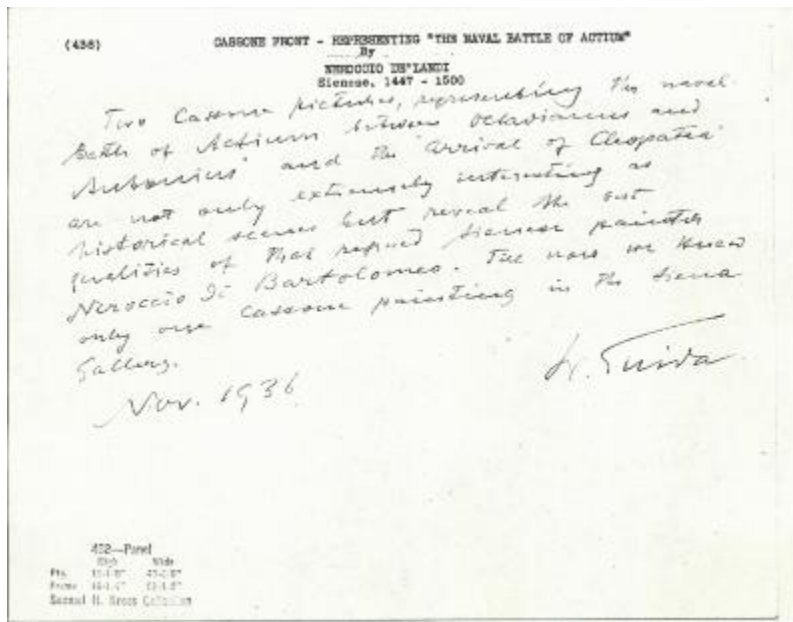 (438)
CASSONE FRONT - REPRESENTING "THE NAVAL BATTLE OF ACTIUM"
By
NEROCCIO DE'LANDI
Sienese, 1447 - 1500
Two Cassone pictures, representing the naval
battle of Actium between Octavianus and
Antonius and the arrival of Cleopatra
are not only extremely interesting as
historical scenes but reveal the best
qualities of that refined Sienese painter
Neroccio di Bartolomeo. Till now we knew
only one cassone painting in the Siena
Gallery.
Nov. 1936
W. Suida
452—Panel
High Wide
Ptg.
Frame
Samuel H. Kress Collection